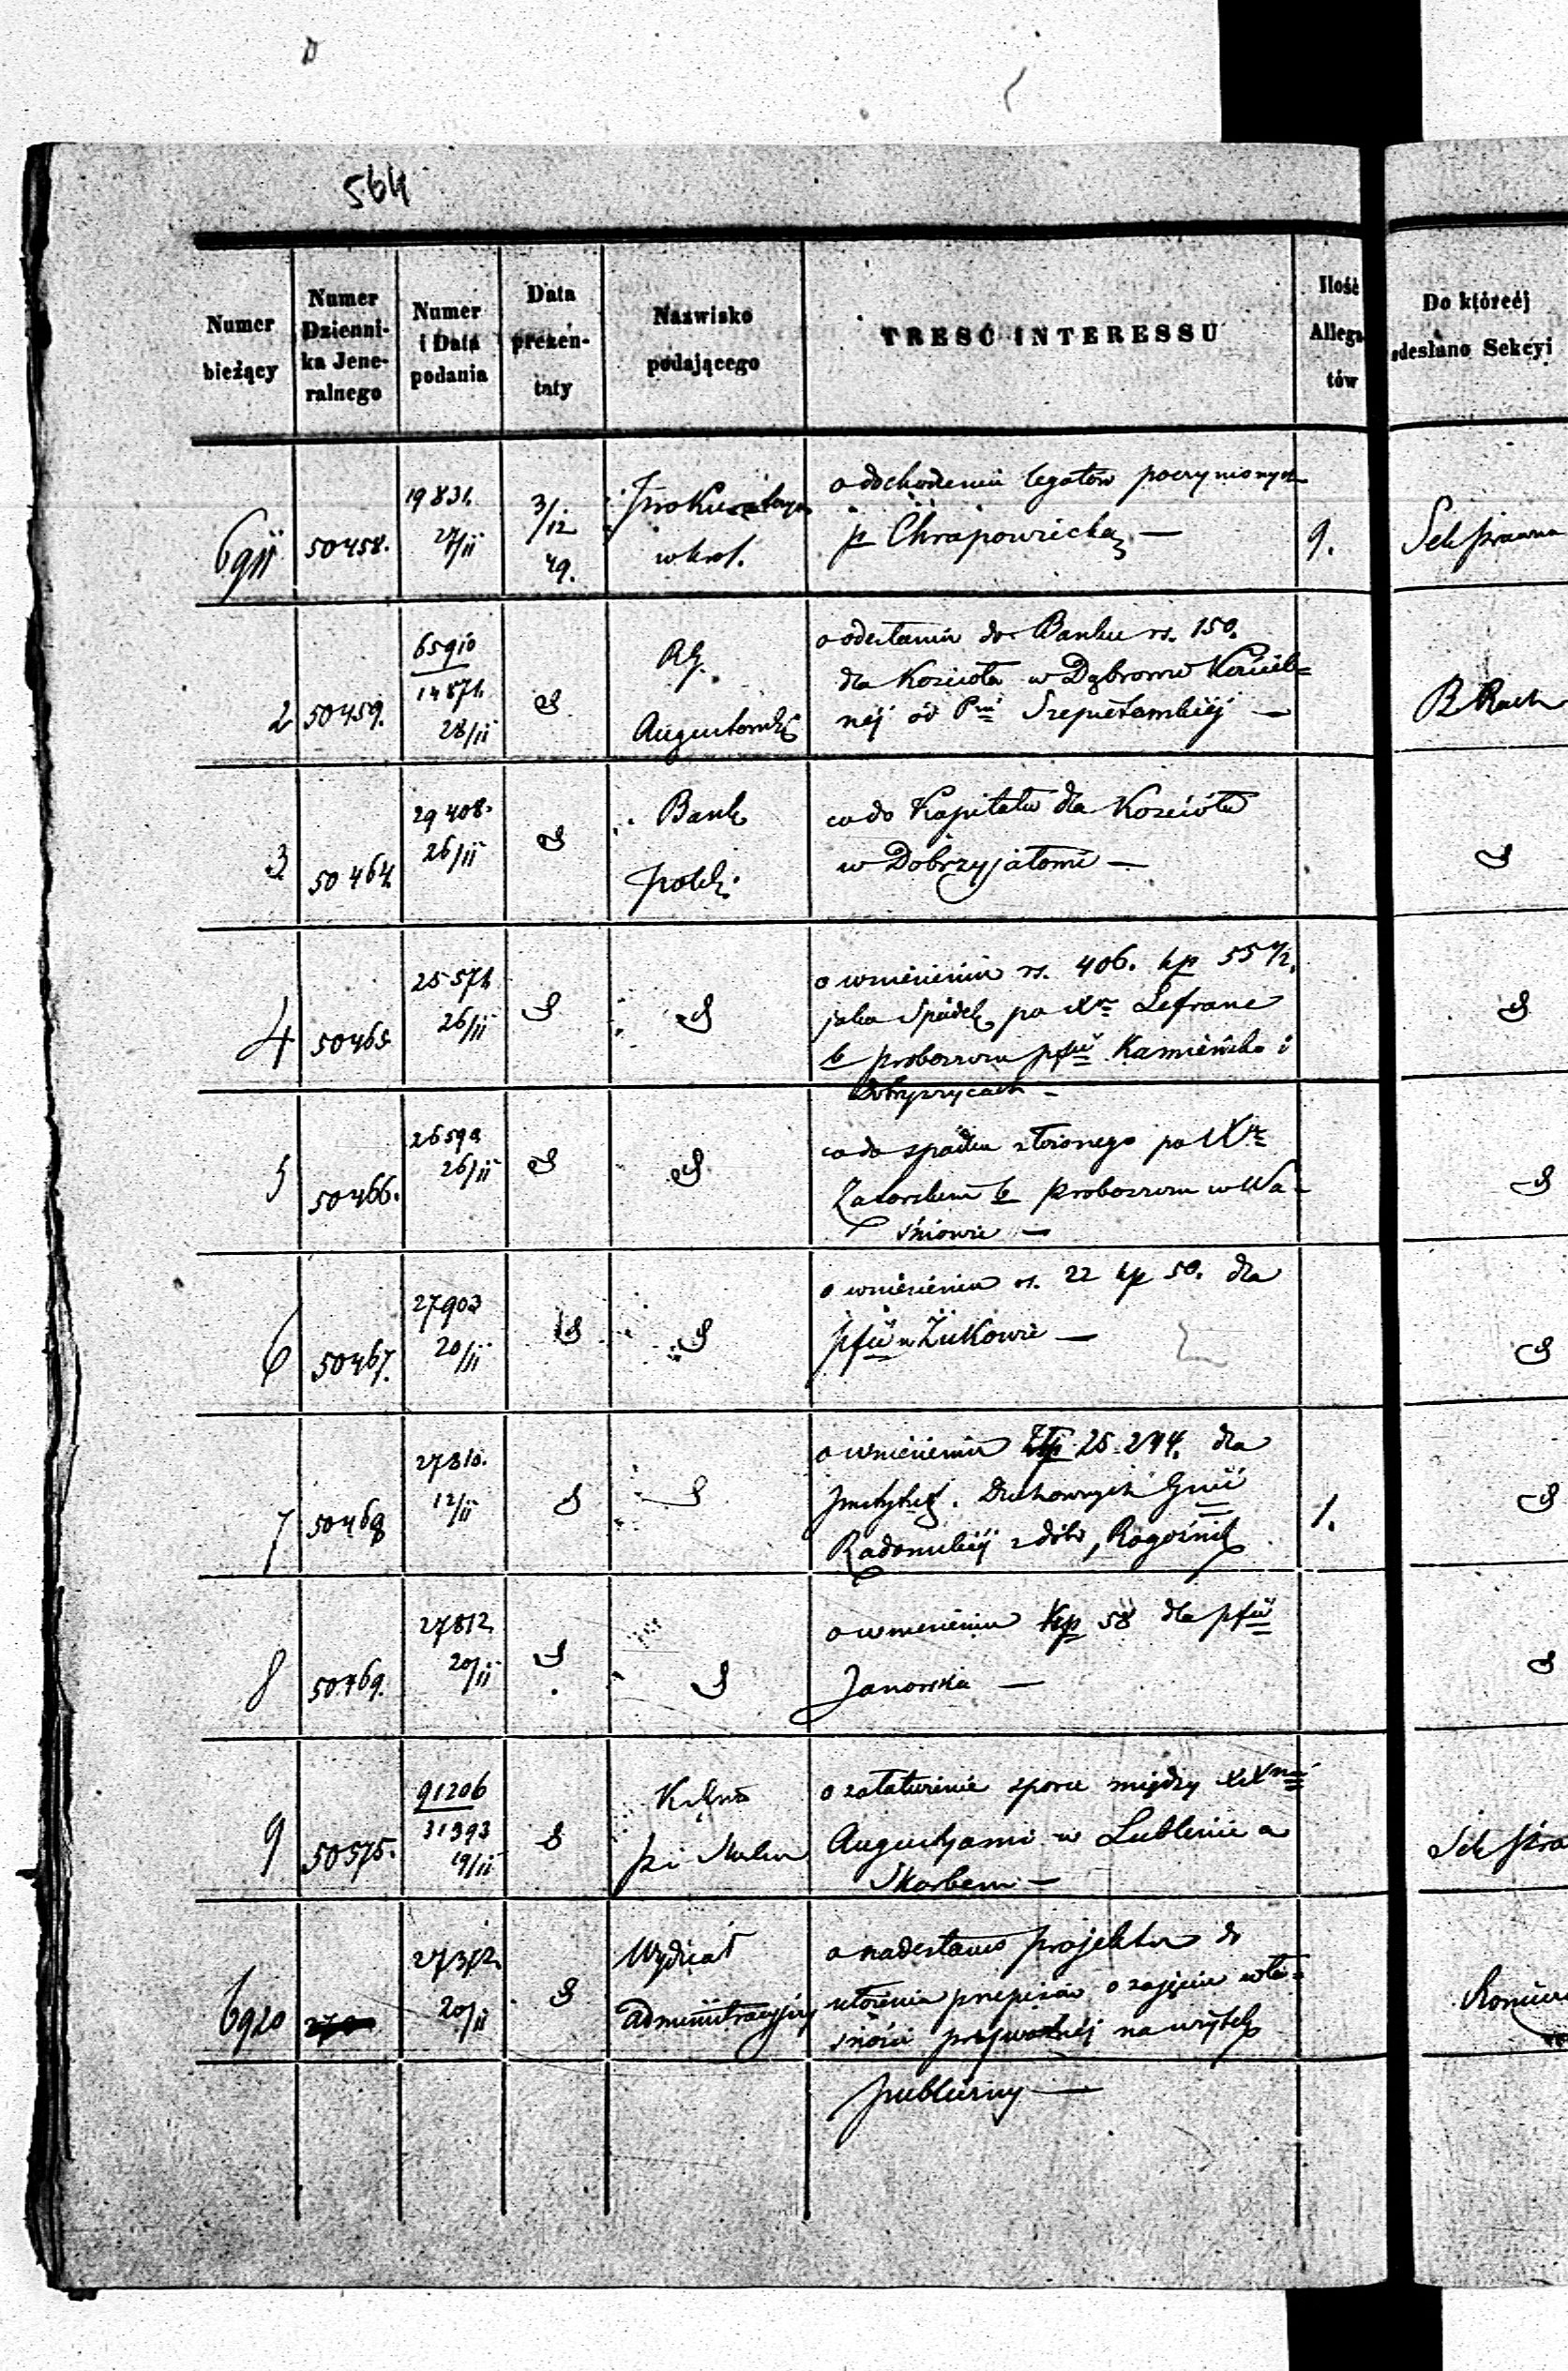 564
Numer bieżący
Numer Dzienni- ka Jene- ralnego
Numer i Data podania
Data prezen- taty
Nazwisko podającego
TRESĆ INTERESSU
Ilość Allega tów
Do któréj odesłano Sekcyi
6911 50458. 19831. 27/11 3/12 49. Prokuratorya w król. 9. Sek prawna
o dochodzeniu legatów poczynionych
p Chrapowicką —
2 50459. 65910 14871. 28/11 RG. Augustowski B Rach
o odesłaniu do Banku rs. 150.
dla Kościoła w Dąbrowie Kościel=
néj od Pni Szepietowskiéj —
3 50464 29408. 26/11 Bank polski
co do Kapitału dla Kościoła
w Dobrzyjałowie —
4 50465 25571 26/11
o wniesieniu rs. 406. kp 55 1/2.
jako Spadek po Xu Lefranc
b proboszczu pfii Kamieńsko i
Dobryszycach —
5 50466. 26592 26/11
co do spadku złożonego po Xu
Zatorskim b proboszczu w Wa-
śniowie —
6 50467. 27903 20/11
o wniesieniu rs. 22 kp 50. dla
pfii w Żukowie —
7 50468 27810. 12/11 1.
o wniesieniu Złp 25.294. dla
Instytut. Duchownych Gnii
Radomskiéj z dóbr Rogoźnik
8 50469. 27812 20/11
o wniesieniu kp 58 dla pfii
Janowska —
9 50575. 91206 31393 19/11 pi Skarbu Sek pra
o załatwienie sporu między XX
Augustjanami w Lublinie a
Skarbem —
6920 27372. 20/11 Wydział administracyjny
o nadesłanie projektu do
ułożenia przepisów o zajęciu wła=
sności prywatnéj na użytek
publiczny —